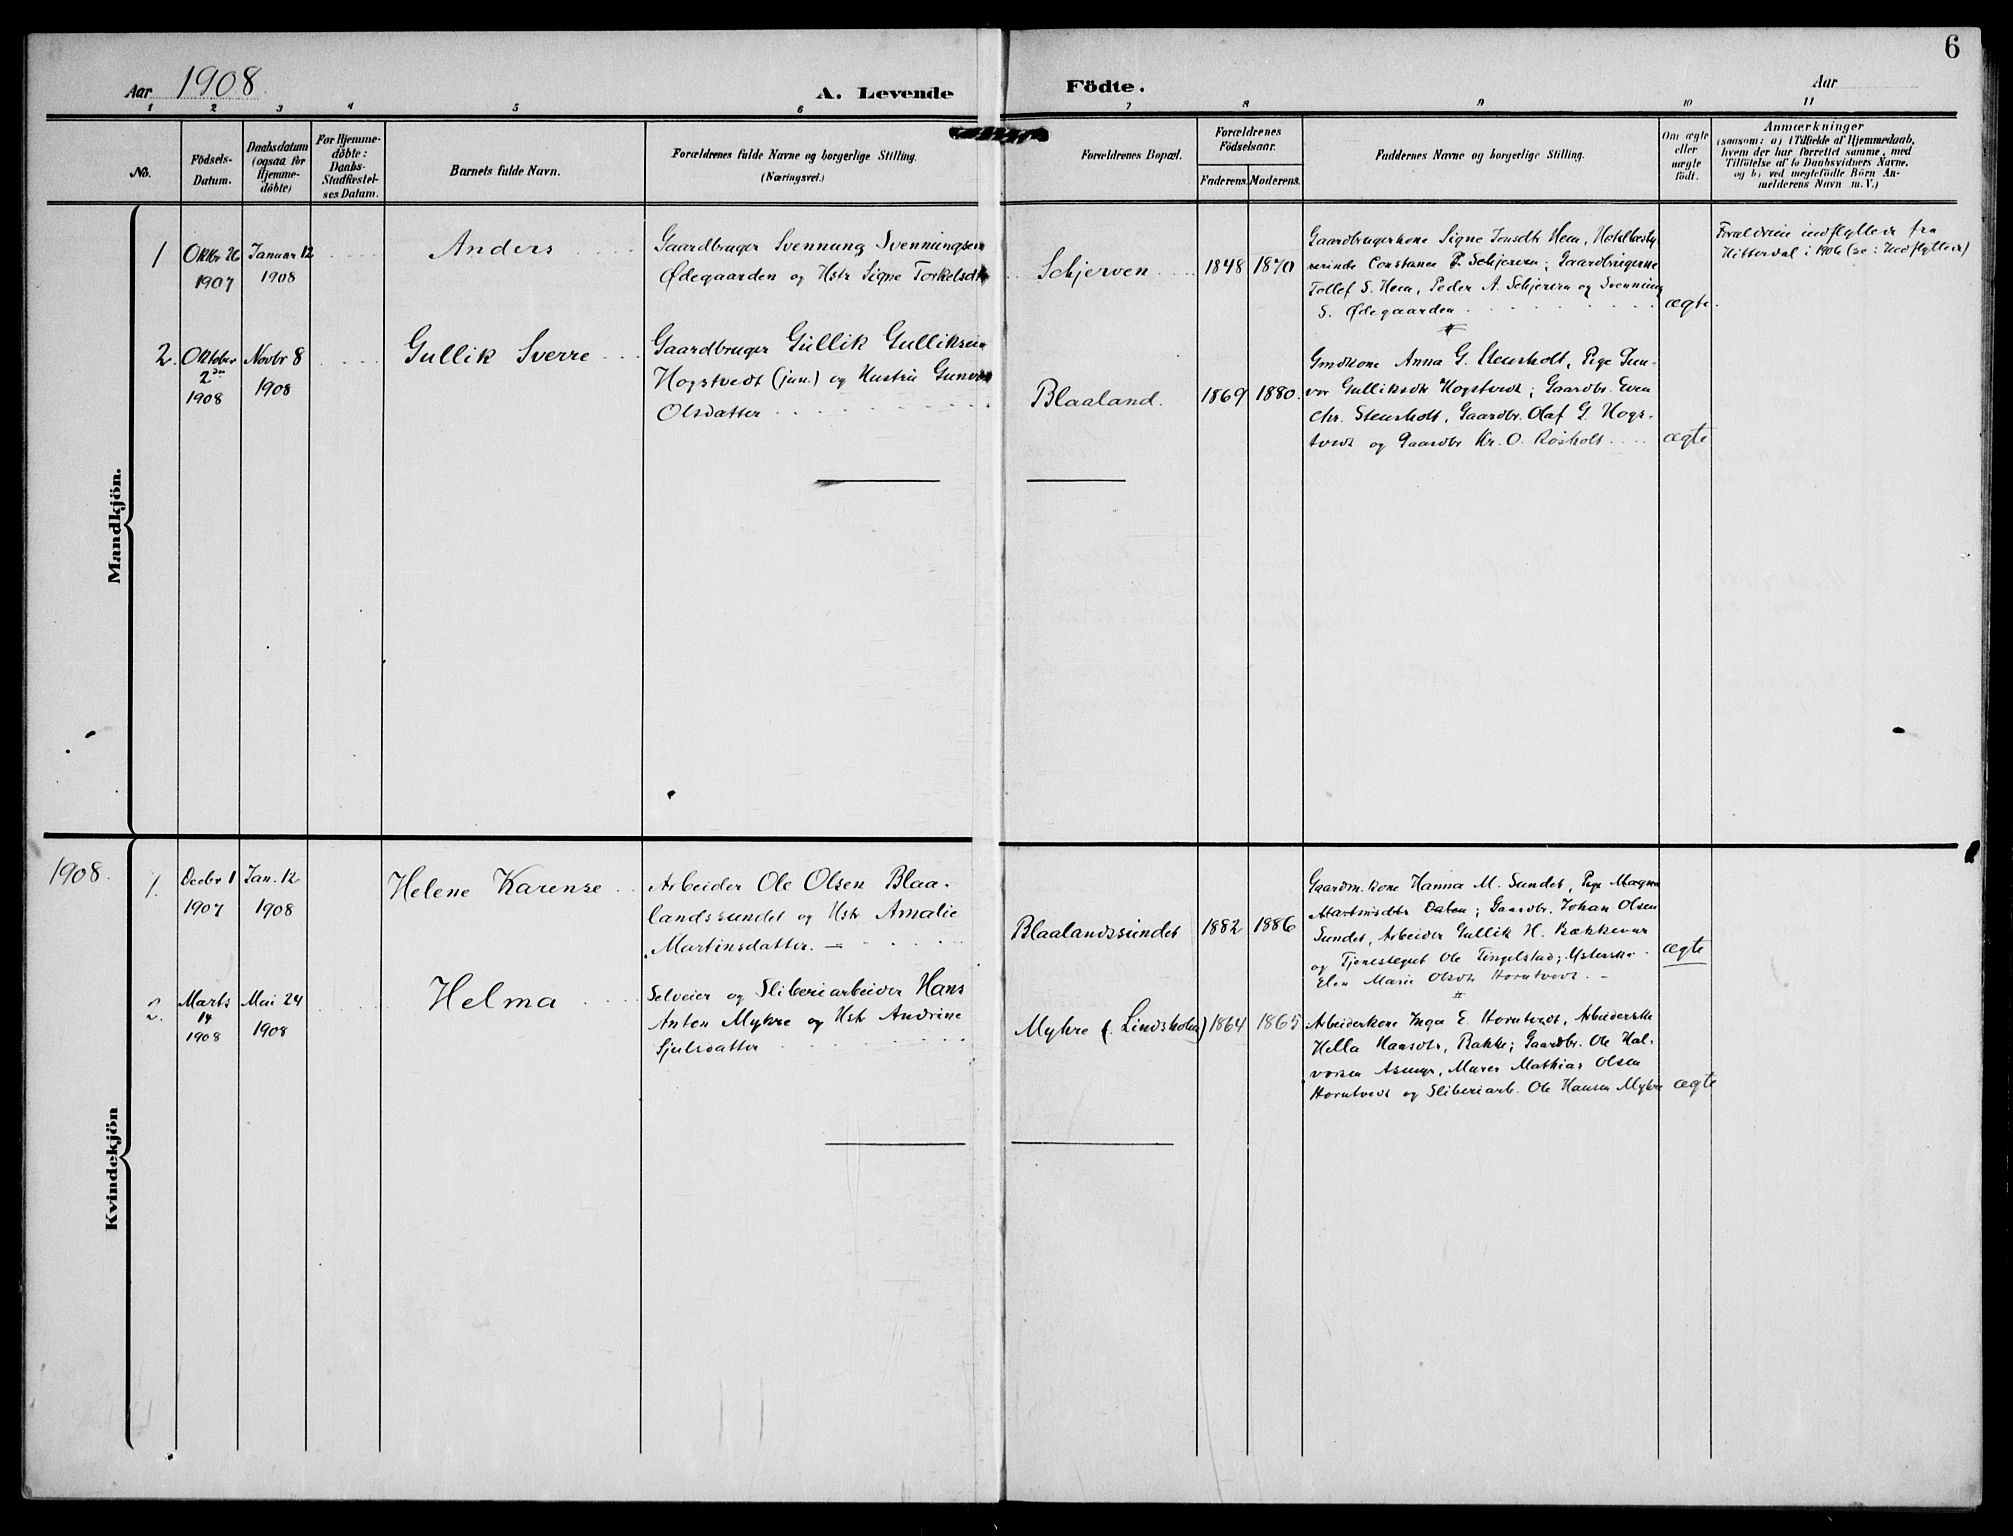 6
Aar 1908
A. Levende
Födte.
Aar
1 2 3 4 5 6
7 8 9 10 11
No.
Födsels-
Datum.
Daabsdatum
(ogsaa for
Hjemme-
döbte)
For Hjemme-
döbte:
Daabs-
Stadfæstel-
ses Datum.
Barnets fulde Navn.
Forældrenes fulde Navne og borgerlige Stilling.
(Næringsvei.)
Forældrenes Bopæl.
Forældrenes
Födselsaar.
Faderens. Moderens.
Faddernes Navne og borgerlige Stilling.
Om ægte
eller
uægte
födt.
Anmærkninger
(saasom: a) i Tilfælde af Hjemmedaab,
hvem der har forrettet samme, med
Tilföielse af to Daabsvidners Navne,
og b) ved uægtefödte Börn An-
melderens Navn m. V.)
Mandkjön.
1
Oktbr 26
1907
Januar 12
1908
Anders
Gaardbruger Svennung Svennungsen
Ødegaarden og Hstr Signe Torkelsdtr
Schjerven
1848 1870
Gaardbrugerkone Signe Jensdt Hem, Hotelbesty-
rerinde Constance P. Schjerven; Gaardbrugerne
Tollef S. Hem, Peder A. Schjerven og Svennung
S. Ødegaarden
ægte.
Forældrene indflyttede fra
Hitterdal i 1906 (se: Indflyttede)
2.
Oktober
2den
1908
Novbr 8
1908
Gullik Sverre
Gaardbruger Gullik Gulliksen
Hogstvedt (jun.) og Hustru Gunvor
Olsdatter
Blaaland.
1869 1880.
Gmdkone Anna G. Stensholt, Pige Gun-
vor Gulliksdtr Hogstvedt; Gaardbr. Even
Chr. Stensholt, Gaardbr. Olaf G. Hogs-
tvedt og Gaardbr Kr. O. Rosholt.
ægte
Kvindekjön
1908.
1.
Decbr 1
1907
Jan. 12
1908
Helene Karense
Arbeider Ole Olsen Blaa-
landssundet og Hstr Amalie
Martinsdatter.
Blaalandssundet
1882 1886
Gaardm.kone Hanna M. Sundet, Pige Magna
Martinsdtr Dalen; Gaardbr. Johan Olsen
Sundet, Arbeider Gullik H. Bækkevar
og Tjenestegut Ole Tingelstad; Ysterske
Elen Marie Olsdtr Horntvedt.
ægte
2.
Marts
14
1908
Mai 24
1908
Helma
Selveier og Sliberiarbeider Hans
Anton Myhre og Hstr Andrine
Sjulsdatter
Myhre (Lindsholm)
1864 1865
Arbeiderkone Inga E. Horntvedt, Arbeiderske
Hella Hansdtr, Bakke; Gaardbr. Ole Hal-
vorsen Asmyr, Murer Mathias Olsen
Horntvedt og Sliberiarb. Ole Hansen Myhre
ægte